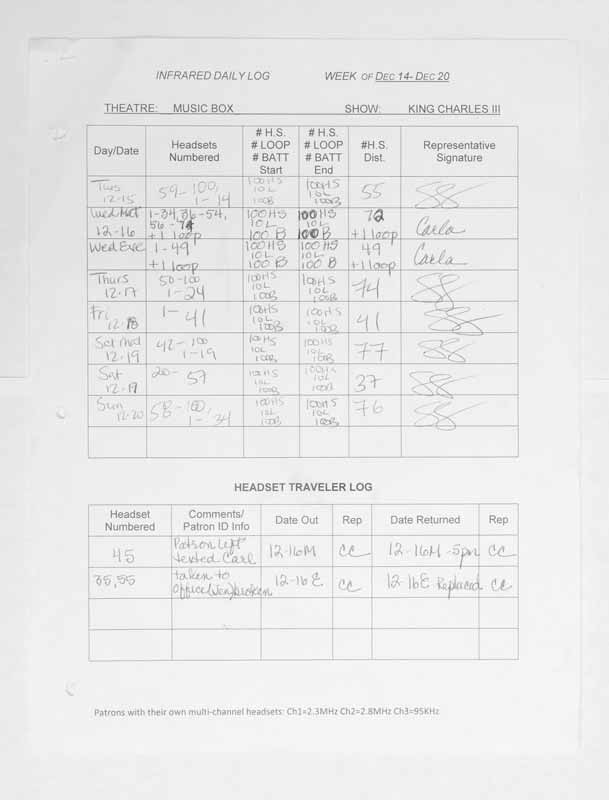 INFRARED DAILY LOG WEEK OF DEC 14- DEC 20
THEATRE: MUSIC BOX SHOW: KING CHARLES III
Day/Date Headsets Numbered # H.S. # LOOP # BATT Start # H.S. # LOOP # BATT End #H.S. Dist. Representative Signature
Tues 12-15 59-100, 1-14 100HS 10L 100B 100HS 10L 100B 55
Wed Mat 12-16 1-34, 36-54, 56-74 +1 loop 100HS 10L 100 B 100 HS 10L 100 B 72 +1 loop Carla
Wed Eve 1-49 +1 loop 100 HS 10L 100 B 100 HS 10L 100 B 49 +1 loop Carla
Thurs 12-17 50-100 1-24 100HS 10L 100B 100HS 10L 100B 74
Fri 12-18 1-41 100HS 10L 100B 100HS 10L 100B 41
Sat Mat 12-19 42-100 1-19 100HS 10L 100B 100HS 10L 100B 77
Sat 12-19 20-57 100HS 10L 100B 100HS 10L 100B 37
Sun 12-20 58-100, 1-34 100HS 10L 100B 100HS 10L 100B 76
HEADSET TRAVELER LOG
Headset Numbered Comments/ Patron ID Info Date Out Rep Date Returned Rep
45 Patron left texted Carl 12-16M CC 12-16M-5pm CC
35,55 taken to Office broken 12-16E CC 12-16E Replaced CC
Patrons with their own multi-channel headsets: Ch1=2.3MHz Ch2=2.8MHz Ch3=95KHz